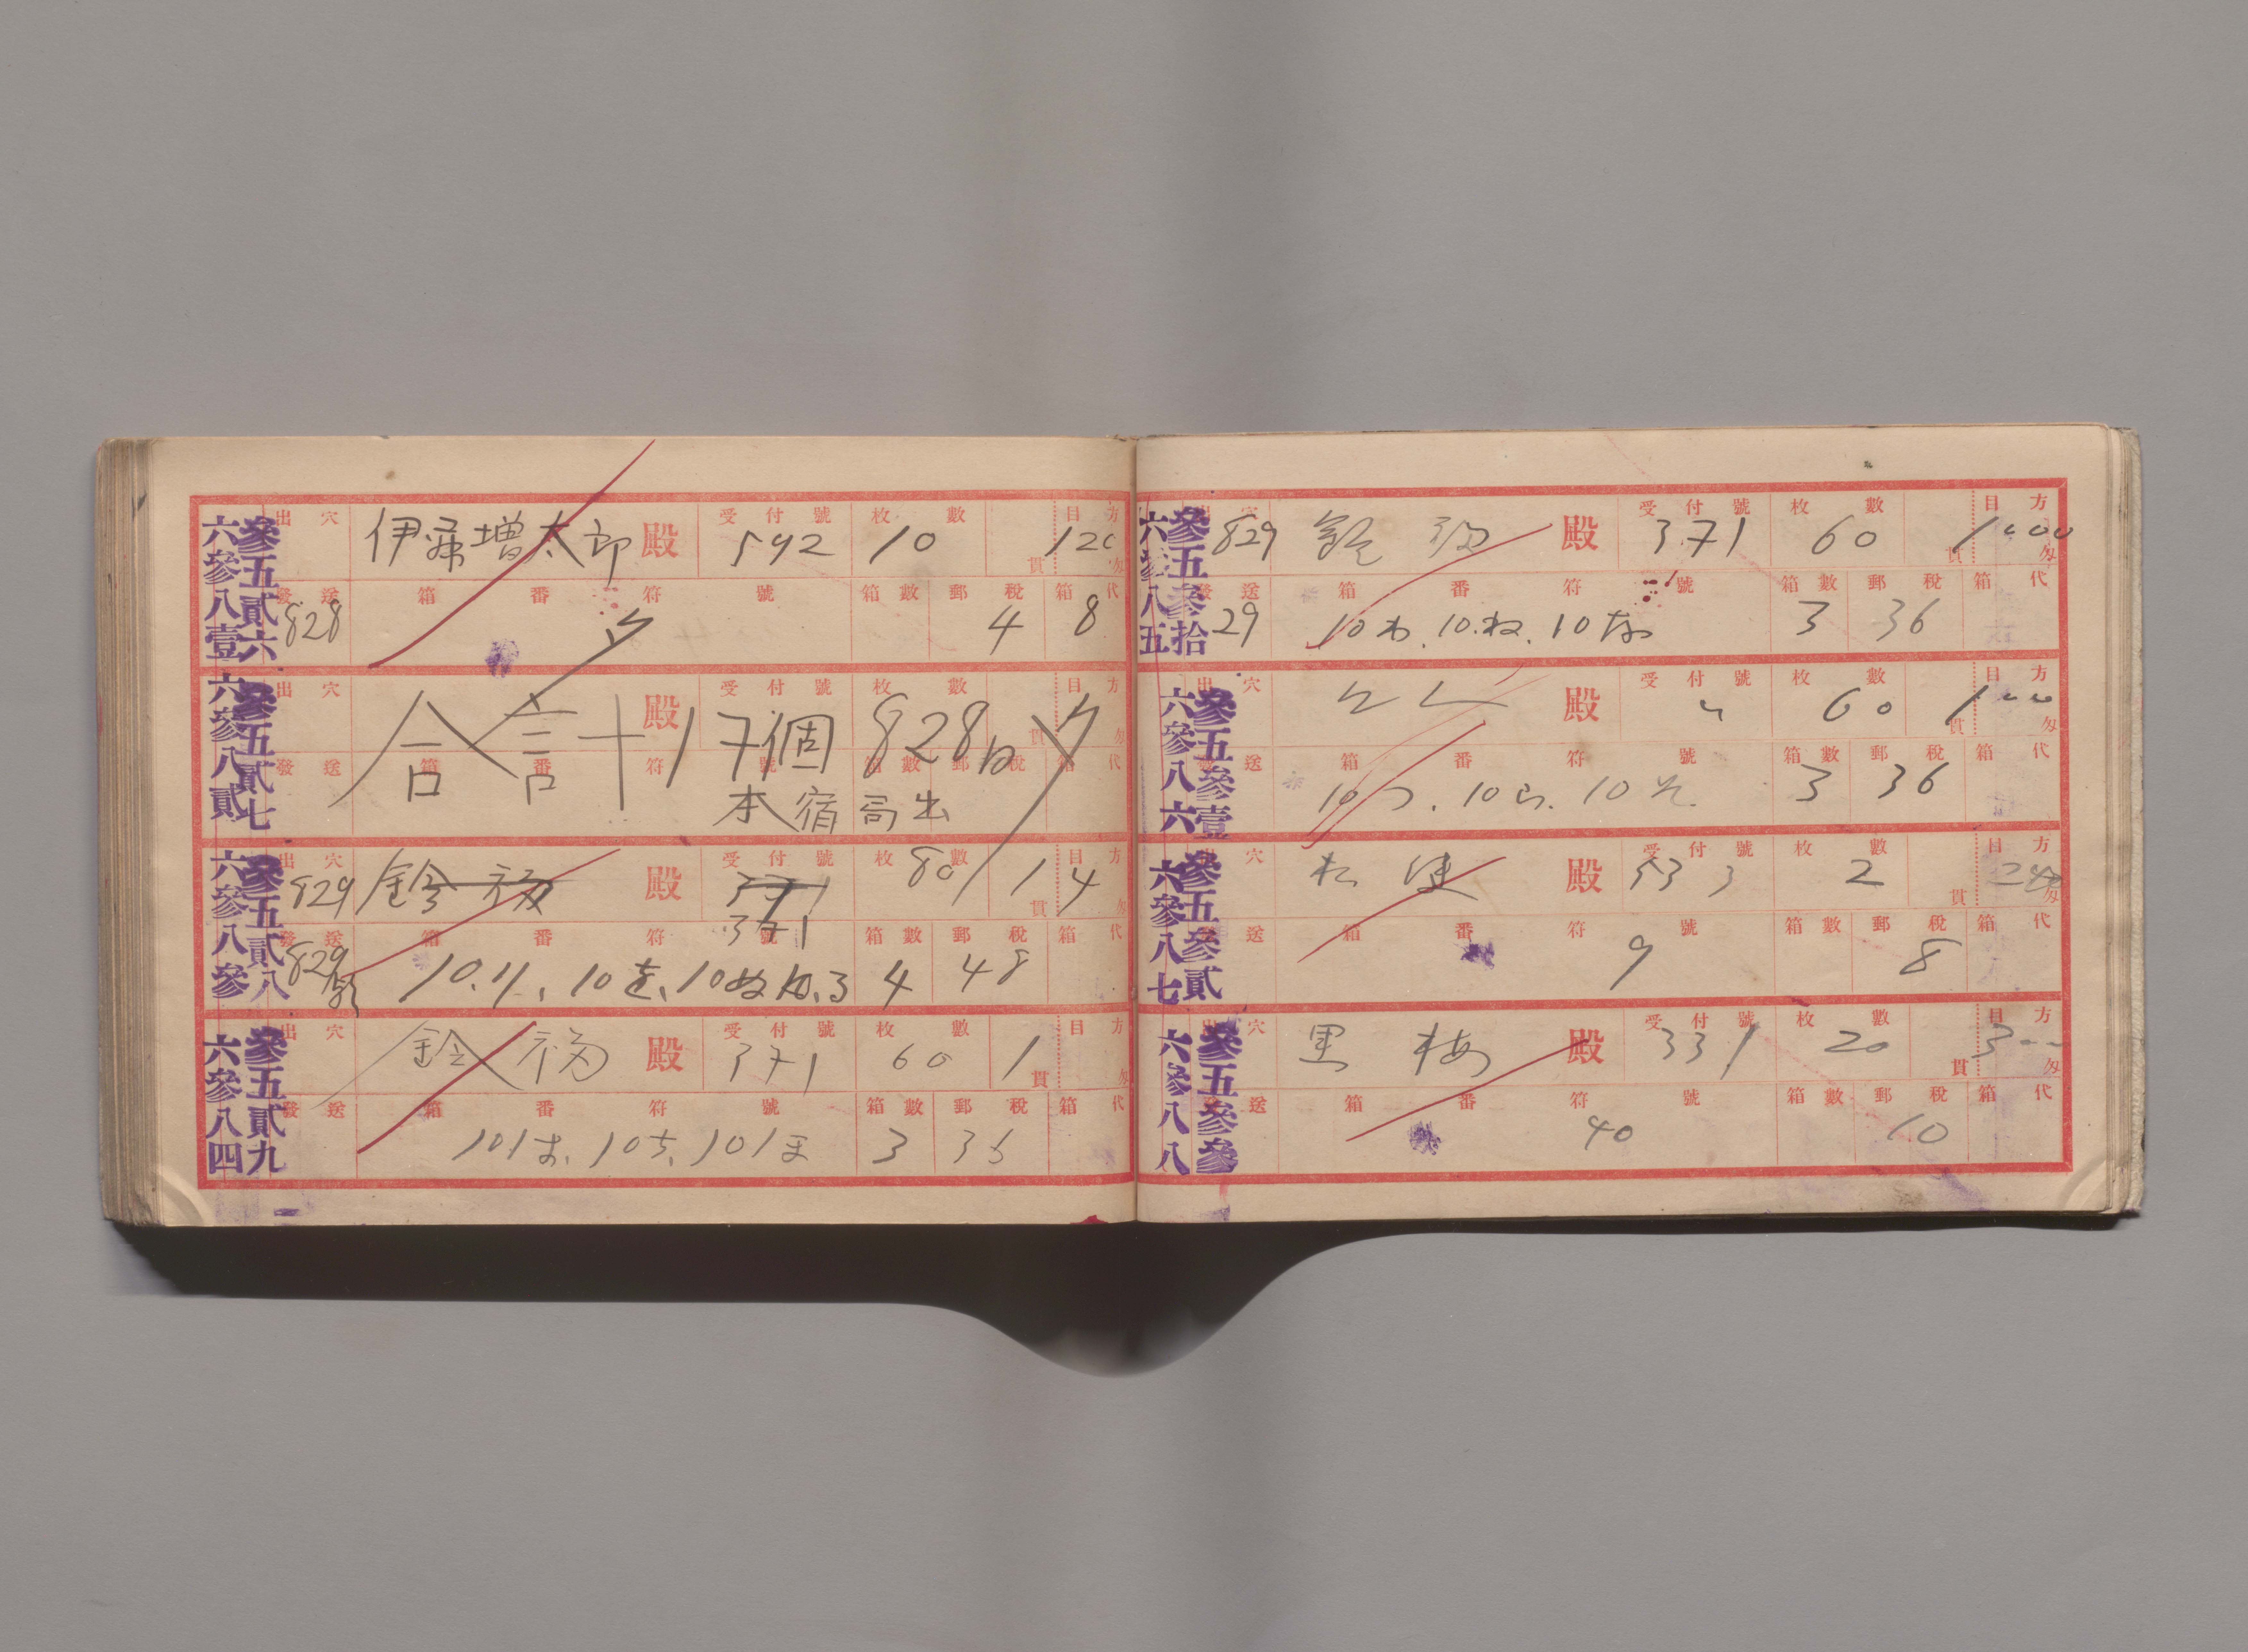 六參八壹 參五貳六
出穴 伊藤増太郎 殿 受付號 592 枚數 10 目方 120 貫 匁
發送 828 箱番符號 箱數 郵税 4 箱代 8
六參八貳 參五貳七
出穴 殿 受付號 枚數 目方 貫 匁
合計 17個 828日
發送 箱番符號 箱數 郵税 箱代
本宿局出
六參八參 參五貳八
出穴 829 鈴福 殿 受付號 371 枚數 80 目方 1 4 貫 匁
371
發送 829 箱番符號 10、り、10を、10ぬ、る 箱數 4 郵税 48 箱代
六參八四 參五貳九
出穴 鈴福 殿 受付號 371 枚數 60 目方 1 貫 匁
發送 箱番符號 箱數 3 郵税 36 箱代
六參八五 參五參拾
出穴 829 殿 受付號 371 枚數 60 目方 1000 貫 匁
發送 29 箱番符號 10わ、10ね、10な 箱數 3 郵税 36 箱代
六參八六 參五參壹
出穴 殿 受付號 〃 枚數 60 目方 1000 貫 匁
發送 箱番符號 10つ、10ら、10そ 箱數 3 郵税 36 箱代
六參八七 參五參貳
出穴 松 殿 受付號 533 枚數 2 目方 240 貫 匁
發送 箱番符號 9 箱數 郵税 8 箱代
六參八八 參五參參
出穴 黒梅 殿 受付號 331 枚數 20 目方 300 貫 匁
發送 箱番符號 40 箱數 郵税 10 箱代